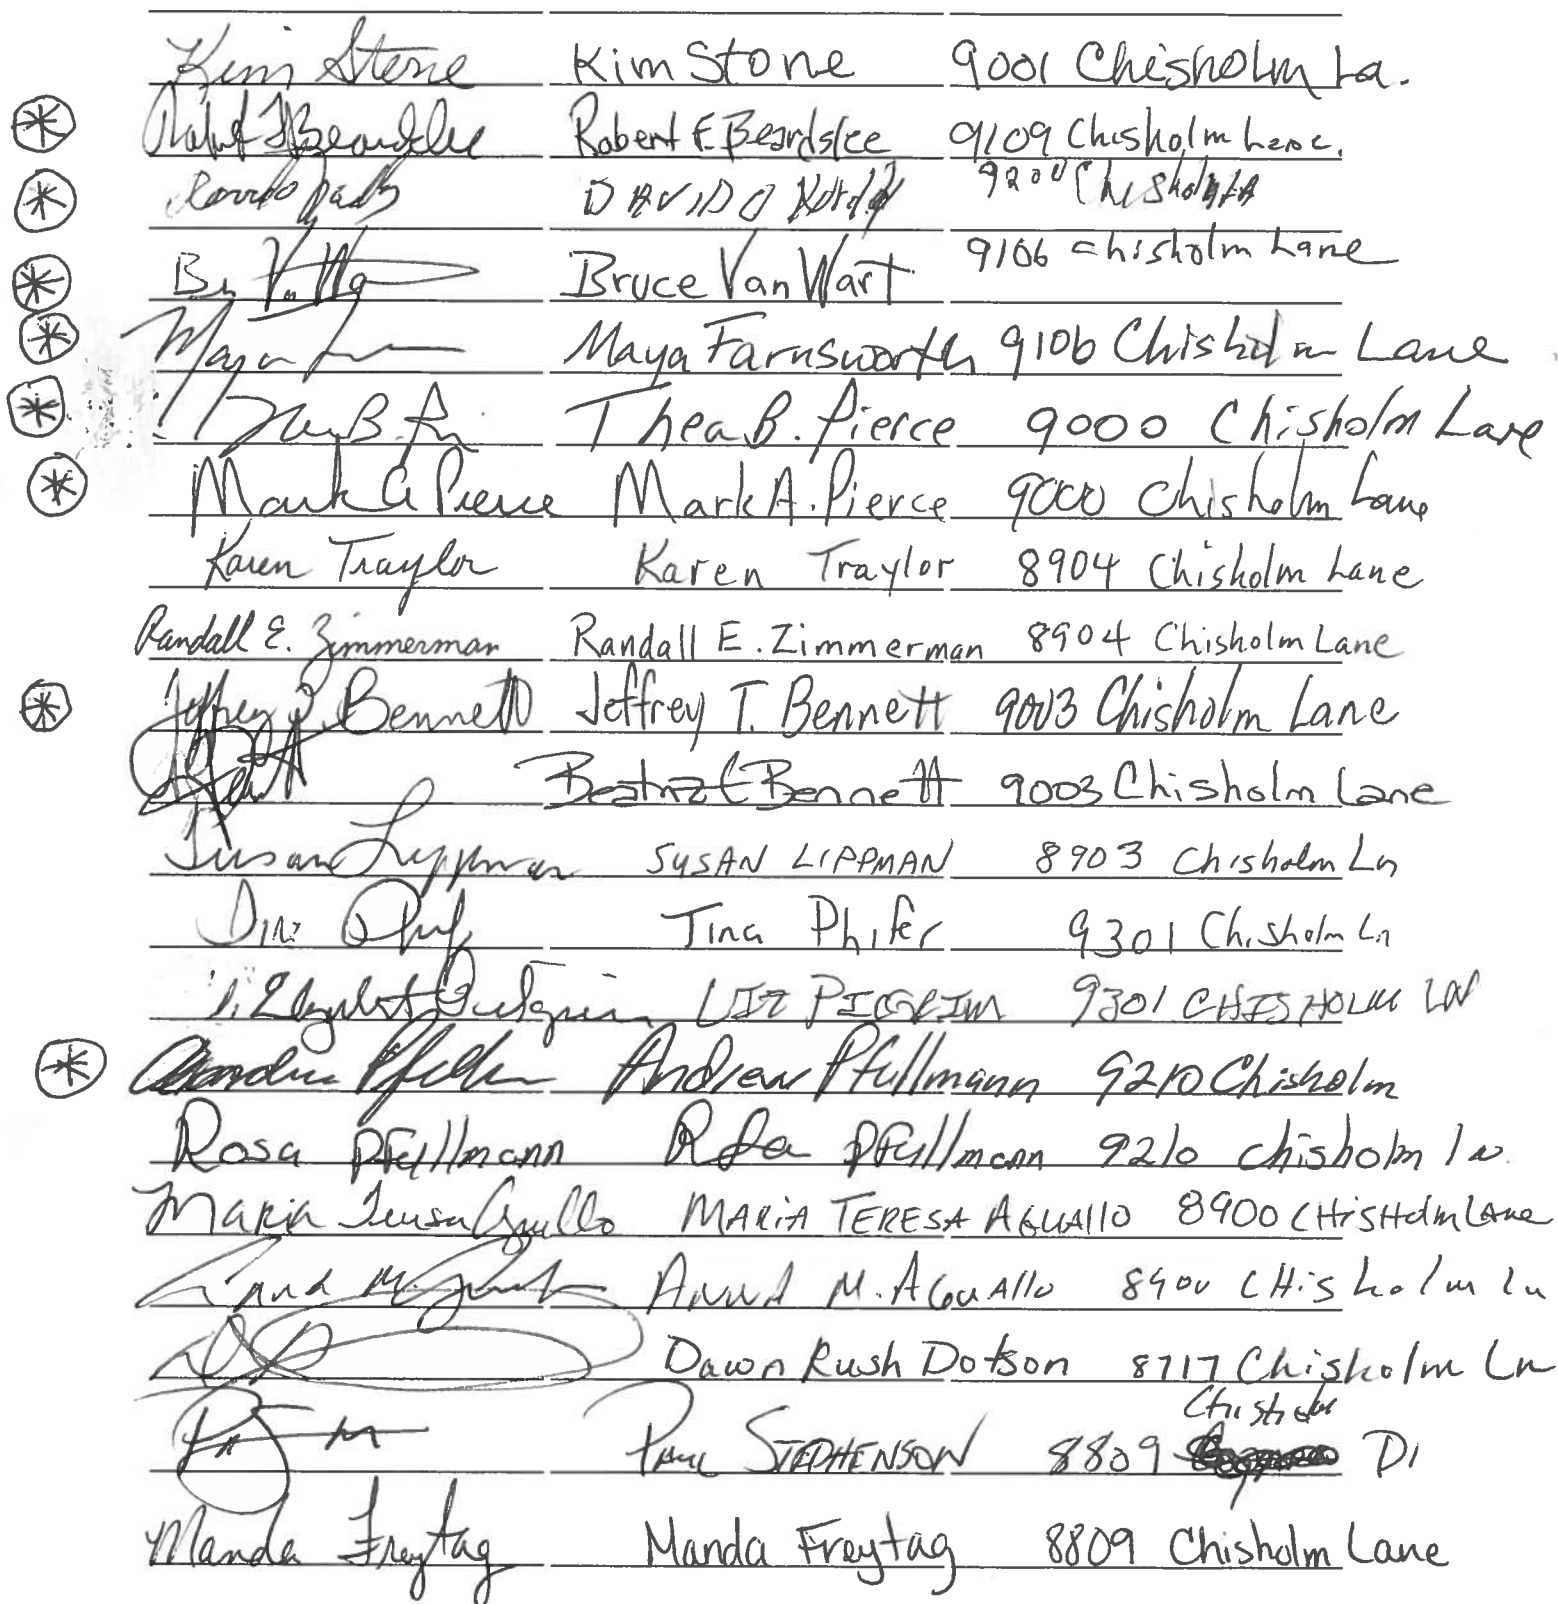 Kim Stone Kim Stone 9001 Chisholm La.
Robert F Beardslee Robert F. Beardslee 9109 Chisholm Lane.
DAVID O 9200 Chisholm LA
Bruce Van Wart 9106 Chisholm Lane
Maya Farnsworth 9106 Chisholm Lane
Thea B. Pierce 9000 Chisholm Lane
Mark A Pierce Mark A. Pierce 9000 Chisholm Lane
Karen Traylor Karen Traylor 8904 Chisholm Lane
Randall E. Zimmerman Randall E. Zimmerman 8904 Chisholm Lane
Jeffrey T. Bennett Jeffrey T. Bennett 9003 Chisholm Lane
Beatriz E Bennett 9003 Chisholm Lane
Susan Lippman SUSAN LIPPMAN 8903 Chisholm Ln
Tina Phifer 9301 Chisholm Ln
LIZ PILGRIM 9301 CHISHOLM LN
Andrew Pfullmann 9210 Chisholm
Rosa Pfullmann Rosa Pfullmann 9210 chisholm ln.
Maria Teresa Aguallo MARIA TERESA AGUALLO 8900 CHISHOLM Lane
Anna M. Aguallo 8900 CHisholm Ln
Dawn Rush Dotson 8717 Chisholm Ln
Chisholm
PAUL STEPHENSON 8809 Dr
Manda Freytag Manda Freytag 8809 Chisholm Lane